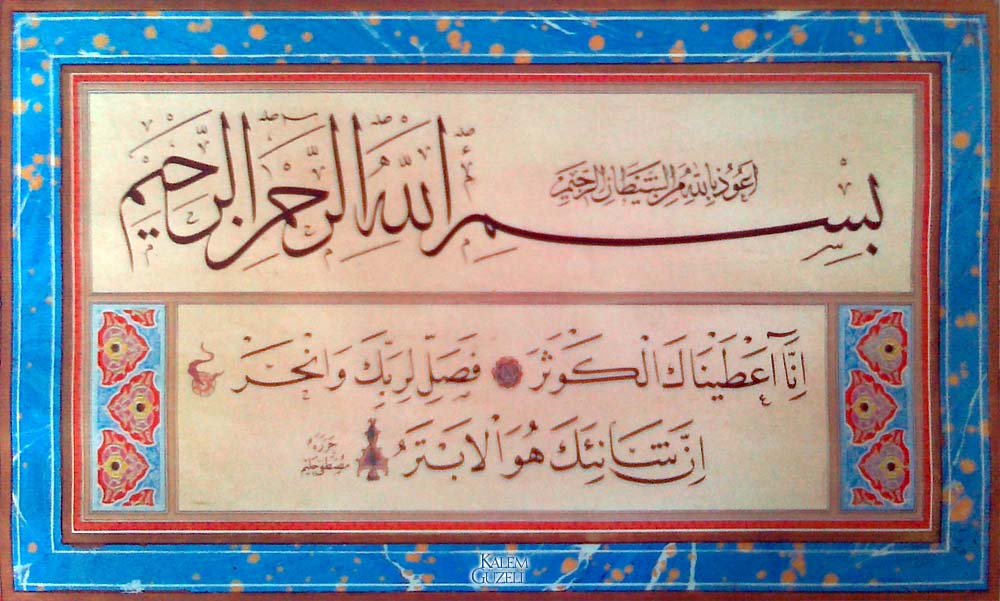 اعوذ بالله من الشيطان الرجيم
بِسْمِ اللهِ الرَّحْمنِ الرَّحِيمِ
اِنَّا آعْطَيْنَاكَ الْكَوْثَرَ فَصَلِّ لِرَبِّكَ وَانْحَرْ
اِنَّ شَانِئَكَ هُوَ الْاَبْتَرُ
حرره
مصطفى حليم
KALEM
GUZELI